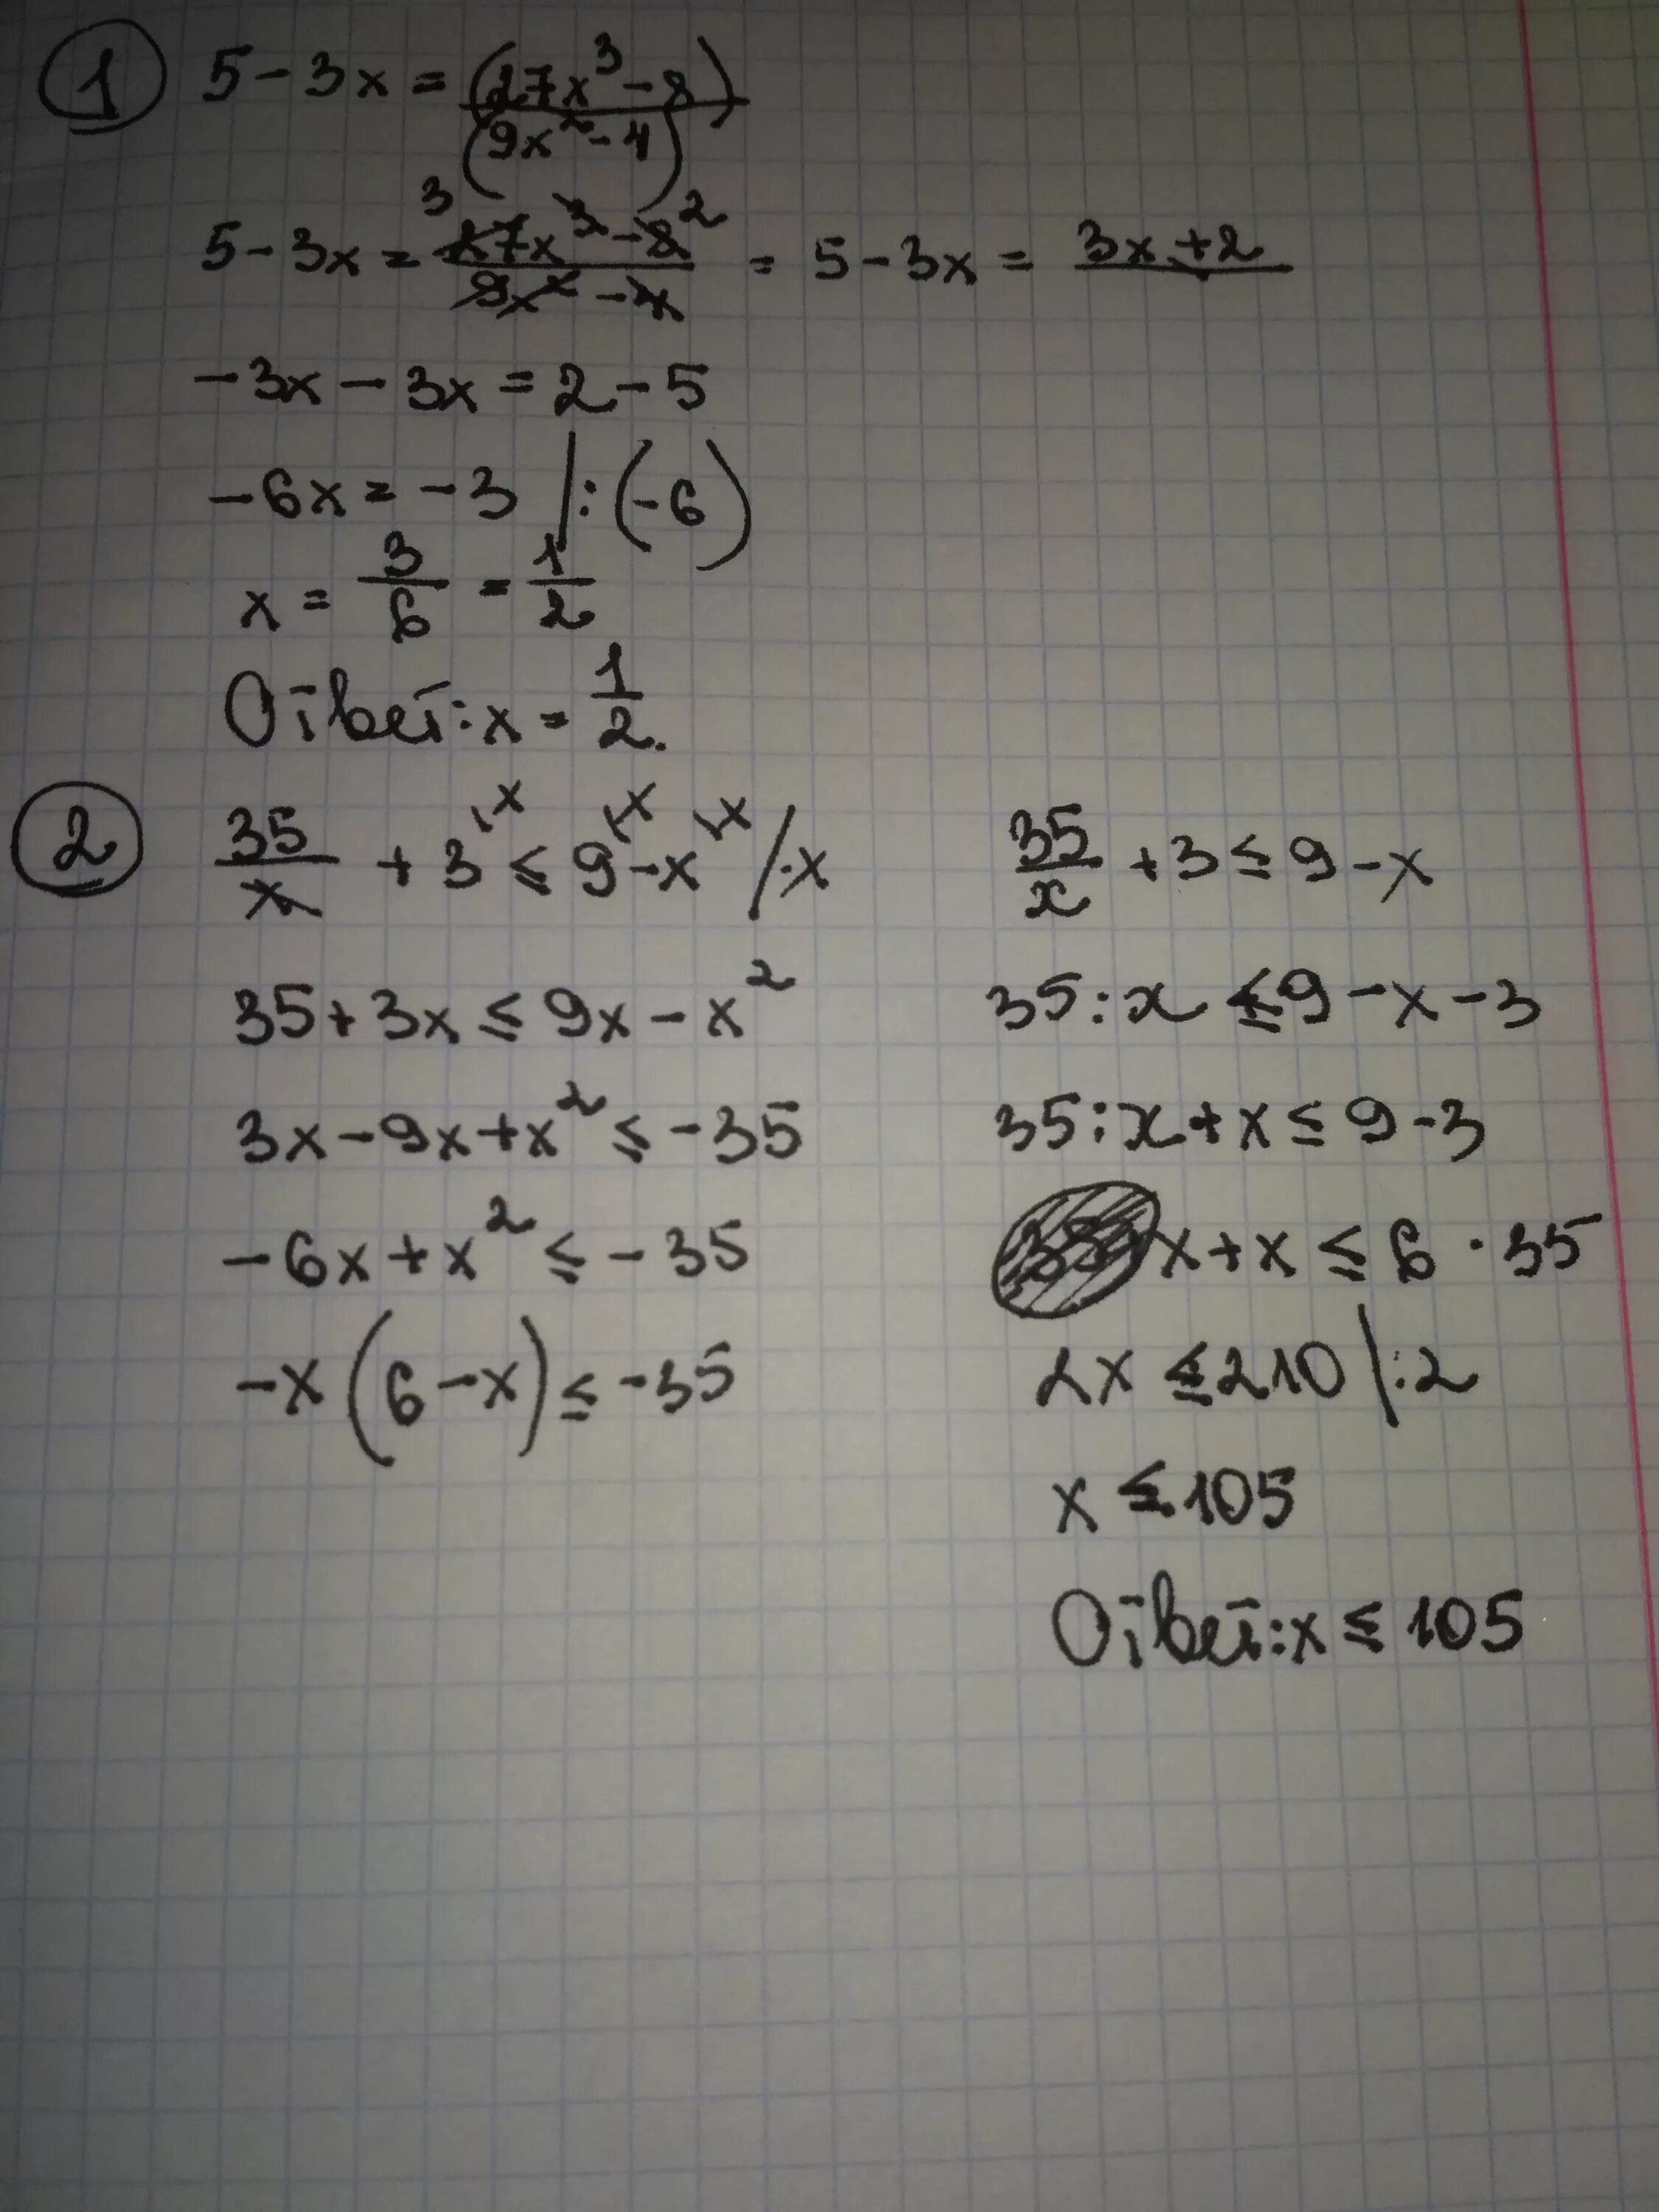 1 5 - 3x = (27x³ - 8) / (9x² - 4)
5 - 3x = 27x³ - 8 / 9x² - 4 = 5 - 3x = 3x + 2
3 2
-3x - 3x = 2 - 5
-6x = -3 | : (-6)
x = 3/6 = 1/2
Ответ: x = 1/2.
2 35/x + 3 ≤ 9 - x / ·x
\x \x \x
35 + 3x ≤ 9x - x²
3x - 9x + x² ≤ -35
-6x + x² ≤ -35
-x (6 - x) ≤ -35
35/x + 3 ≤ 9 - x
35 : x ≤ 9 - x - 3
35 : x + x ≤ 9 - 3
x + x ≤ 6 · 35
2x ≤ 210 | : 2
x ≤ 105
Ответ: x ≤ 105